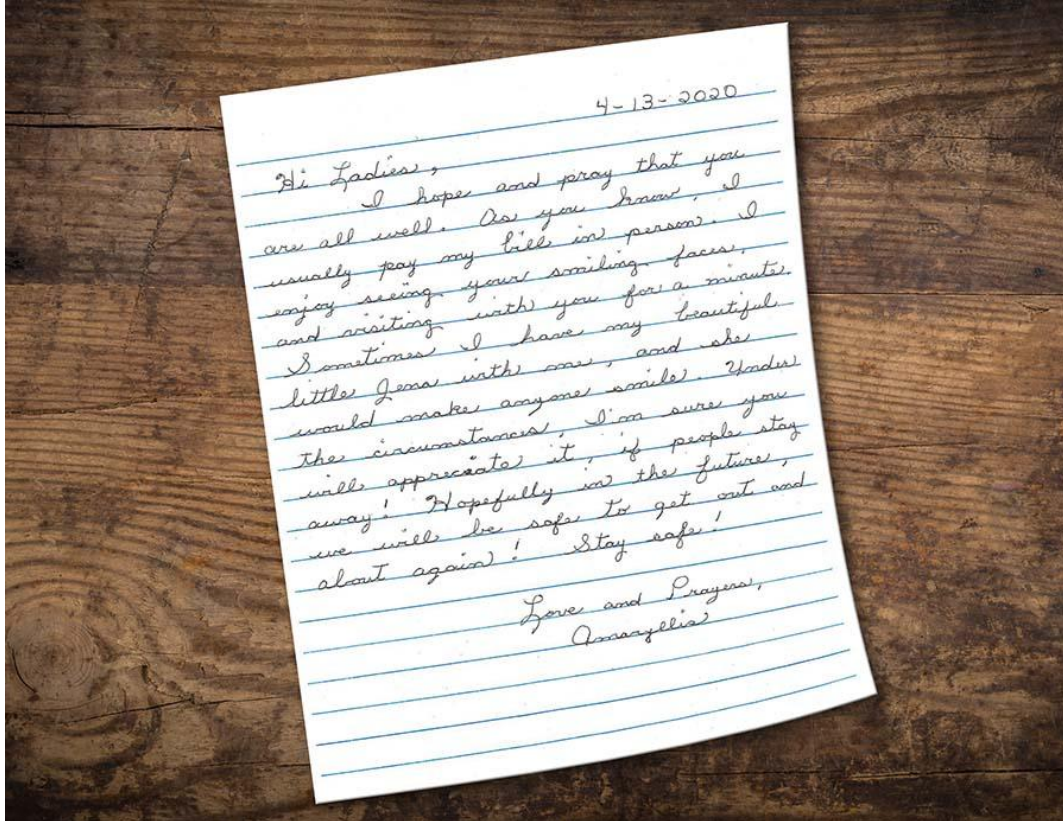 4-13-2020
Hi Ladies,
I hope and pray that you
are all well. As you know, I
usually pay my bill in person. I
enjoy seeing your smiling faces,
and visiting with you for a minute.
Sometimes I have my beautiful
little Jena with me, and she
would make anyone smile. Under
the circumstances, I'm sure you
will appreciate it, if people stay
away! Hopefully in the future,
we will be safe to get out and
about again! Stay safe!
Love and Prayers,
Amaryllis